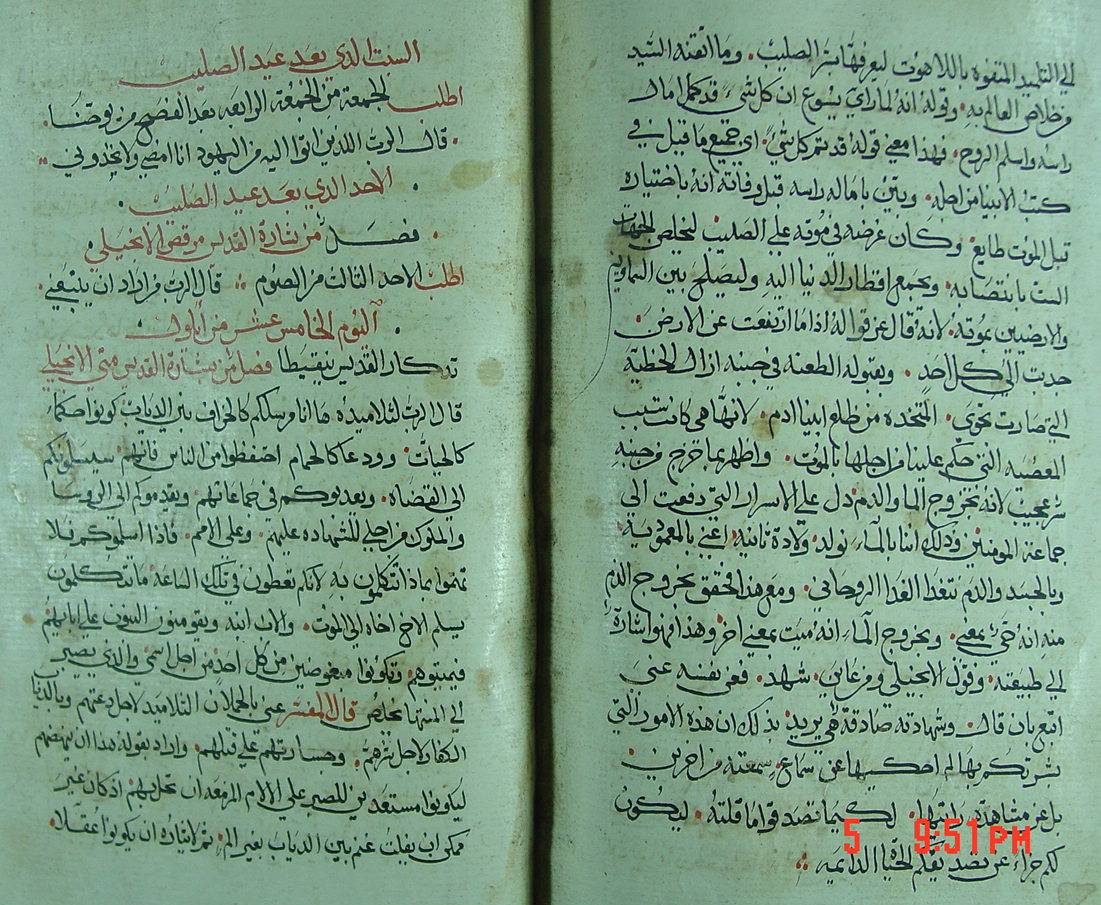 الى التلميذ المتفوه باللاهوت ليعرفها بسر الصليب. وما اتقنه السيد
من خلاص العالم به. وقوله انه لما راي يسوع ان كل شي قد كمل امال
راسه واسلم الروح. فهذا معني قوله قد تم كل شي. اي جميع ما قيل في
كتب الانبيا من اجله. وبين بامالة راسه قبل وفاته انه باختياره
قبل الموت طايع. وكان غرضه في موته علي الصليب ليخلص الجهات
الست بانتصابه. ويجمع اقطار الدنيا اليه وليصلح بين السماويين
والارضيين بموته. لانه قال عز قوله اذا ما ارتفعت عن الارض.
جدبت الي كل احد. وبقبوله الطعنه في جنبه ازال الخطية
التي صارت بحوي. المتخده من ضلع ابينا ادم. لانها هي كانت سبب
القضيه التي حكم علينا من اجلها بالموت. واظهر بما خرج من جنبه
سر عجيب لانه بخروج الما والدم دل علي الاسرار التي دفعت الي
جماعة المومنين وذلك اننا بالماء نولد ولادة ثانيه اعني بالمعمودية
وبالجسد والدم نتغدا الغدا الروحاني. ومع هذا فحقق بخروج الدم
منه انه حي بمعني. وبخروج الماء انه ميت بمعني اخر وهذا فهو اشارة
الي طبيعته. وقول الانجيلي ومن عاين شهد. فعن نفسه عني
اتبع بان قال وشهادته صادقة هي يريد بذلك ان هذه الامور التي
بشرتكم بها لم احكيها عن سماع سمعته من اخرين
بل عن مشاهدة راتبها. لكيما تصدقوا ما قلته. ليكون
لكم جزاء عن تصديقكم الحياة الدايمه
5 9:51PM
السبت الذي بعد عيد الصليب
اطلب الجمعة من الجمعة الرابعه بعد الفصح من
قال الرب للذين اتوا اليه من اليهود انا امضي ولا تجدوني
الاحد الذي بعد عيد الصليب
فصل من بشارة القديس مرقص الانجيلي
اطلب الاحد الثالث من الصوم قال الرب من اراد ان يتبعني
اليوم الخامس عشر من ايلول
تدكار القديس نيقيطا فصل من بشارة القديس متي الانجيلي
قال الرب لتلاميذه ها انا مرسلكم كالخراف بين الدياب كونوا حكماء
كالحيات ودعا كالحمام احتفظوا من الناس فانهم سيسلمونكم
الي القضاه. ويعدبوكم في جماعاتهم ويقدموكم الي الروسا
والملوك من اجلي للشهاده عليهم وعلي الامم. فاذا اسلموكم فلا
تهتموا بماذا تتكلمون به لانكم تعطون في تلك الساعه ما تتكلمون
يسلم الاخ اخاه الي الموت. والاب ابنه ويقومون البنون علي ابايهم
فيميتوهم وتكونوا مبغوضين من كل احد من اجل اسمي والدي يصبر
الي المنتها يخلص قال المفسر عني بالحملان التلاميد لاجل دعتهم وبالدياب
الكفار لاجل شرهم. وجسارتهم علي قتلهم. واراد بقوله هذا ان ينهضهم
ليكونوا مستعدين للصبر علي الالام المزمعه ان تحل بهم اذ كان غير
ممكن ان يفلت غنم بين الدياب بغير الم. ثم لايثاره ان يكونوا عقلا.